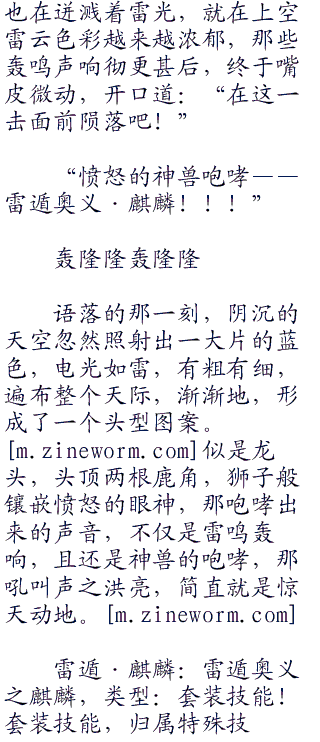 也在迸溅着雷光，就在上空
雷云色彩越来越浓郁，那些
轰鸣声响彻更甚后，终于嘴
皮微动，开口道：“在这一
击面前陨落吧！”
“愤怒的神兽咆哮——
雷遁奥义·麒麟！！！”
轰隆隆轰隆隆
语落的那一刻，阴沉的
天空忽然照射出一大片的蓝
色，电光如雷，有粗有细，
遍布整个天际，渐渐地，形
成了一个头型图案。
[m.zineworm.com]似是龙
头，头顶两根鹿角，狮子般
镶嵌愤怒的眼神，那咆哮出
来的声音，不仅是雷鸣轰
响，且还是神兽的咆哮，那
吼叫声之洪亮，简直就是惊
天动地。[m.zineworm.com]
雷遁·麒麟：雷遁奥义
之麒麟，类型：套装技能！
套装技能，归属特殊技